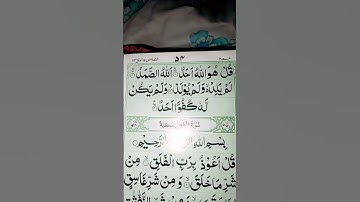 ٥٤
قُلْ هُوَ اللّٰهُ اَحَدٌ اَللّٰهُ الصَّمَدُ
لَمْ يَلِدْ وَلَمْ يُوْلَدْ وَلَمْ يَكُنْ
لَّهٗ كُفُوًا اَحَدٌ
سُوْرَةُ الْفَلَقِ
بِسْمِ اللّٰهِ الرَّحِيْمِ
قُلْ اَعُوْذُ بِرَبِّ الْفَلَقِ مِنْ
شَرِّ مَا خَلَقَ وَمِنْ شَرِّ غَاسِقٍ
وَمِنْ شَرِّ النَّفّٰثٰتِ